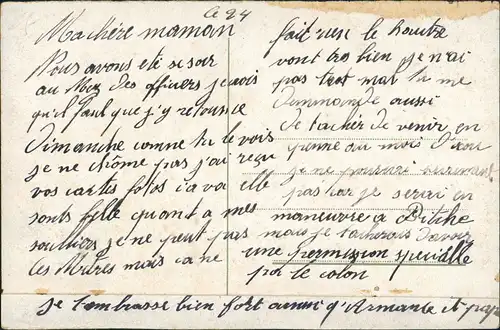 Ce 24
Ma chére maman
Nous avons eté se soir
au Mez des officiers je crois
qu'il faut que j'y retourne
Dimanche comme tu le vois
je ne chôme pas j'ai reçu
vos cartes fotos ca va elle
sont fille quant a mes
souliers je ne peut pas
les Mètres mais ca ne
fait rien le Hautre
vont tres bien je n'ai
pas trot mal tu me
demmande aussi
de tacher de venir en
perme au mois d'aout
je ne pourrai surement
pas car je serai en
manœuvre a Bitche
mais je tacherais d'avoir
une permission speciale
par le colon
Je t'embrasse bien fort ainsi q'Armance et